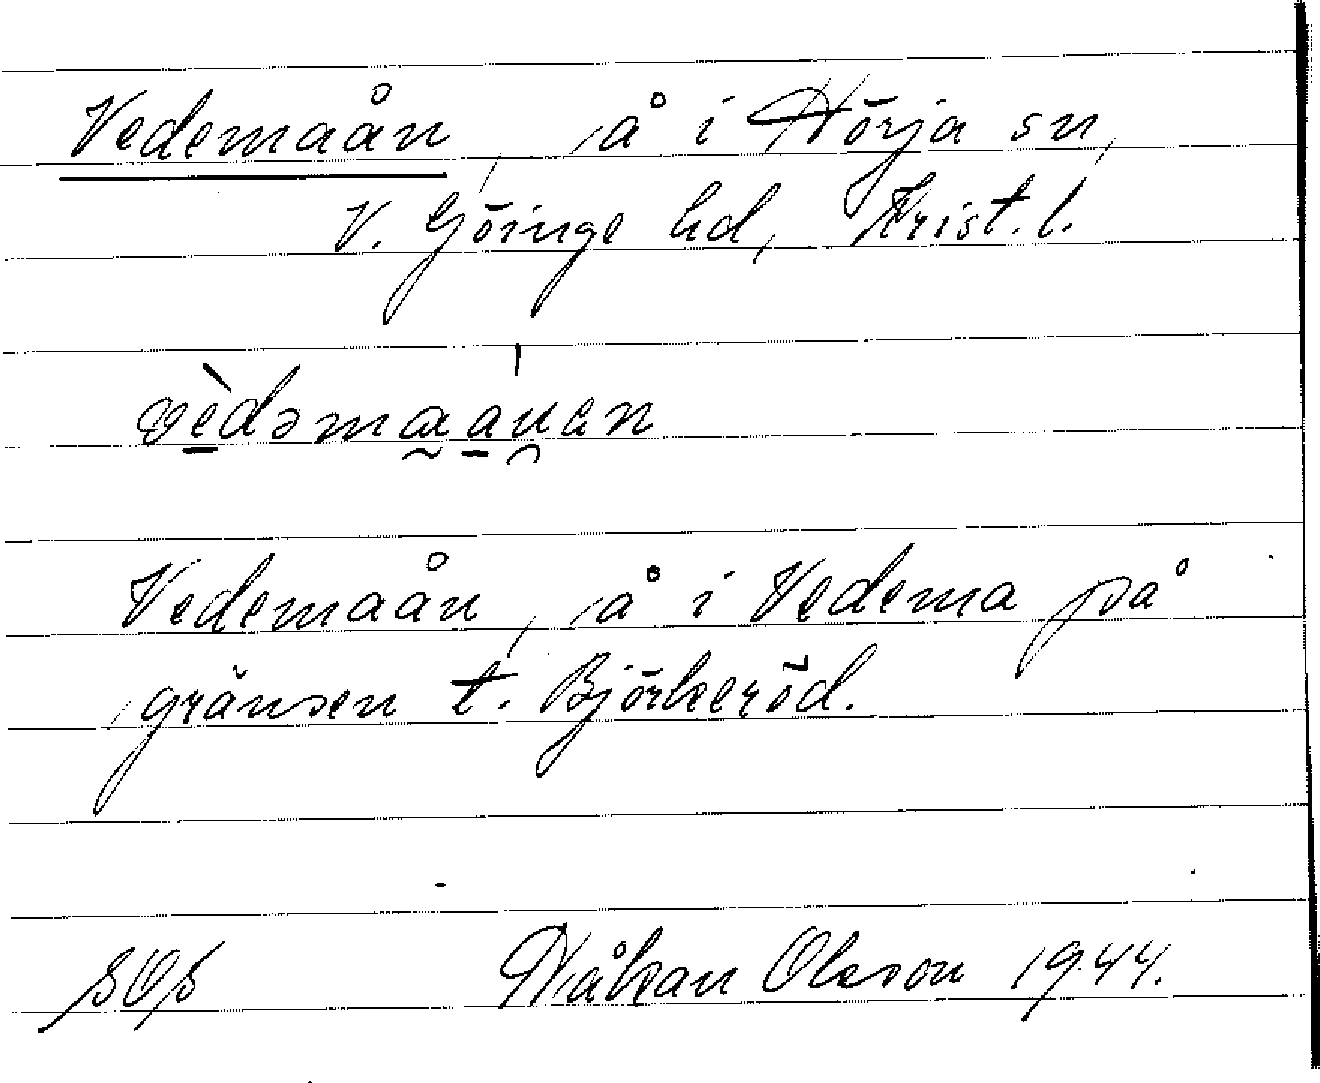 Vedemaån, å i Hörja sn,
V. Göinge hd, Krist. l.
vèdəmaauen
Vedemaån, å i Vedema på
gränsen t. Björkeröd.
Håkan Olsson 1944.